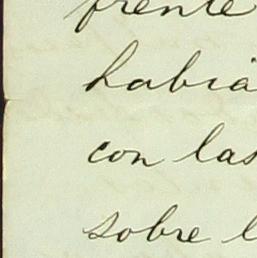 frente
había
con las
sobre l